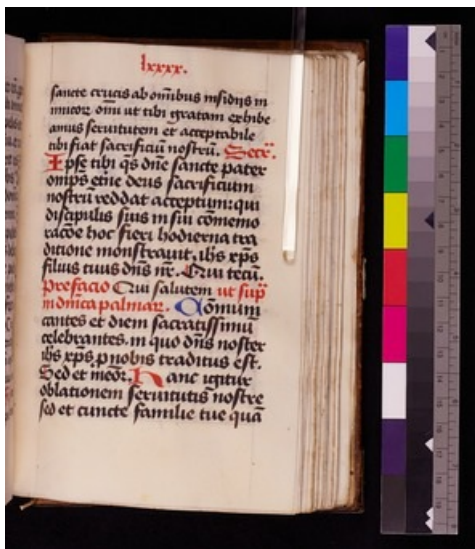 lxxxx.
sancte crucis ab om̄ibus insidijs in
imicor̄ om̄i ut tibi gratam exhibe
amus seruitutem et acceptabile
tibi fiat sacrificiū nostrū. Secr̄.
Ipse tibi qs dn̄e sancte pater
omps et̄ne deus sacrificium
nostrū reddat acceptum: qui
discipulis suis in sui cōmemo
racōe hoc fieri hodierna tra
ditione monstrauit. ihs xp̄s
filius tuus dn̄s nr̄. Qui tecū.
Prefacio Qui salutem ut sup̄
in dn̄ica palmar̄. Cōmuni
cantes et diem sacratissimū
celebrantes. in quo dn̄s noster
ihs xp̄s p nobis traditus est.
Sed et meōr̄. Hanc igitur
oblationem seruitutis nostre
sed et cuncte familie tue quā